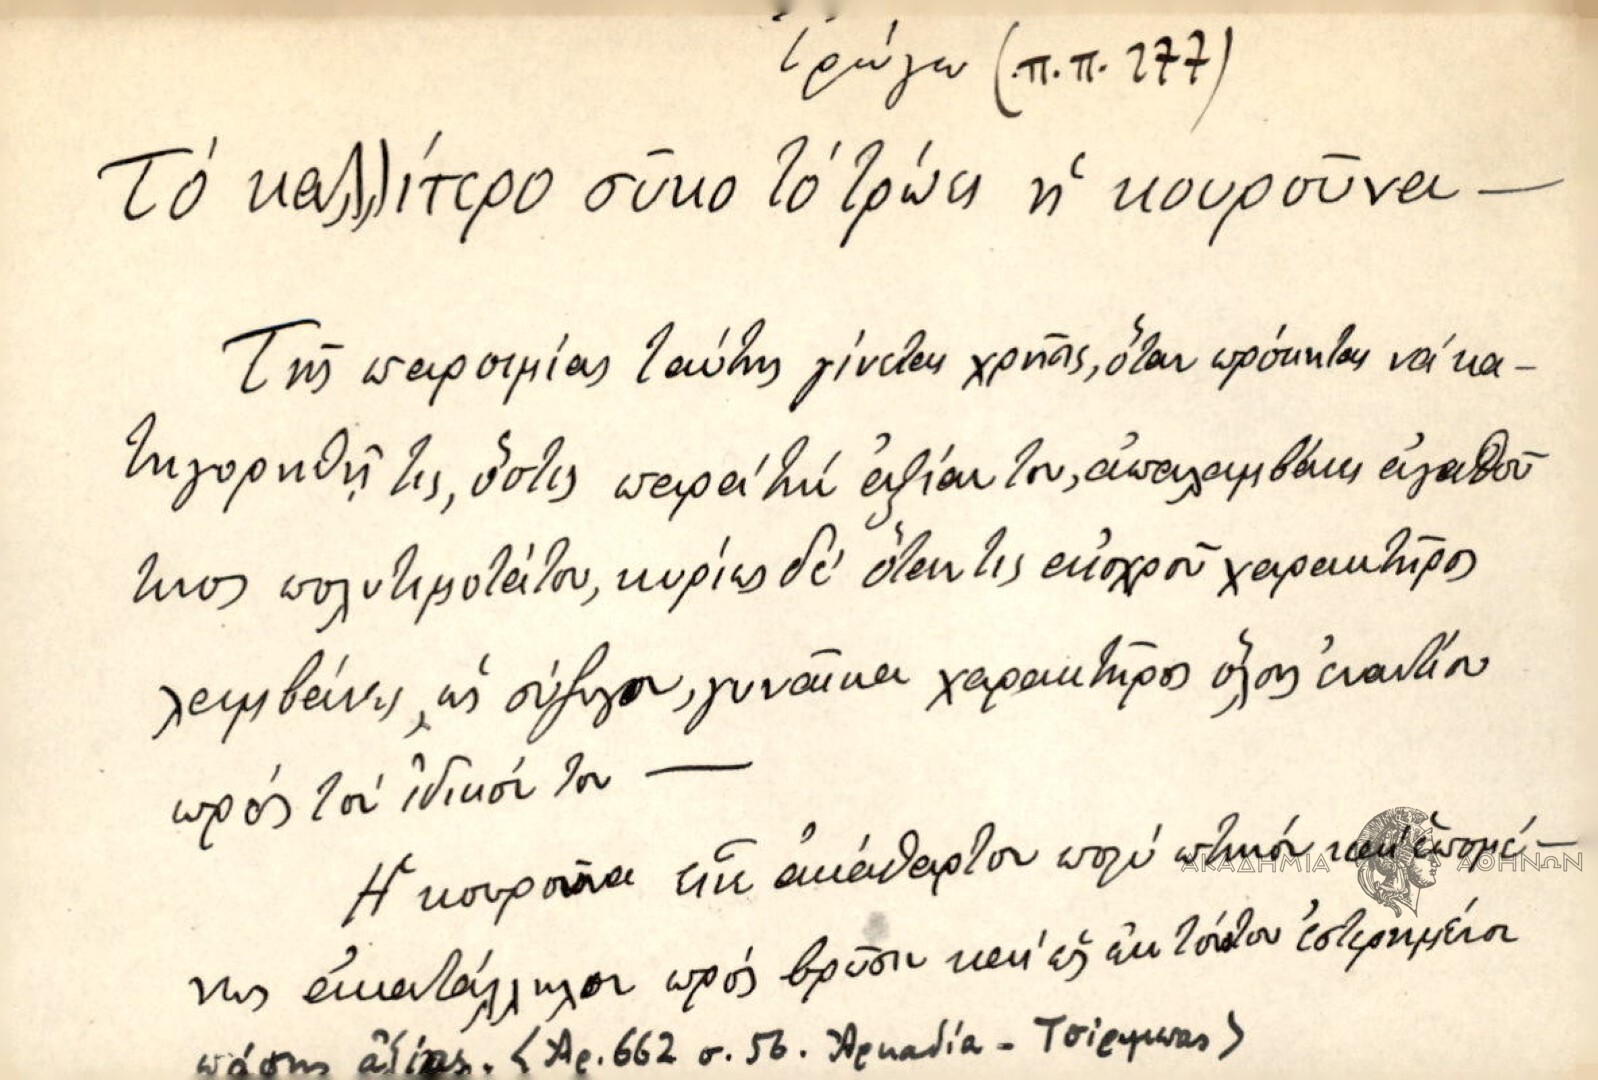 τρώγω (π.π. 277)
Τό καλλίτερο σῦκο τό τρώει ἡ κουροῦνα —
Τῆς παροιμίας ταύτης γίνεται χρῆσις, ὅταν πρόκηται νά κα-
τηγορηθῇ τις, ὅστις παρά τήν ἀξίαν του, ἀπολαμβάνει ἀγαθοῦ
τινος πολυτιμοτάτου, κυρίως δέ ὅταν τις αἰσχροῦ χαρακτῆρος
λαμβάνει, ὡς σύζυγον, γυναῖκα χαρακτῆρος ὅλως ἐναντίου
πρός τόν ἰδικόν του —
Ἡ κουροῦνα εἶναι ἀκάθαρτον πολύ πτηνόν καί ἑπομέ-
νως ἀκατάλληλον πρός βρῶσιν καί ὡς ἐκ τούτου ἐστερημένον
πάσης ἀξίας. <Ἀρ. 662 σ. 56. Ἀρκαδία - Τσίριμπας>
ΑΚΑΔΗΜΙΑ ΑΘΗΝΩΝ